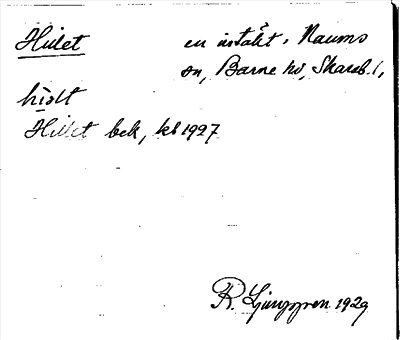 Hulet en intäkt, Naums
sn, Barne hd, Skarab. l,
hùlt
Hulet bek, kb 1927
R. Ljunggren 1929